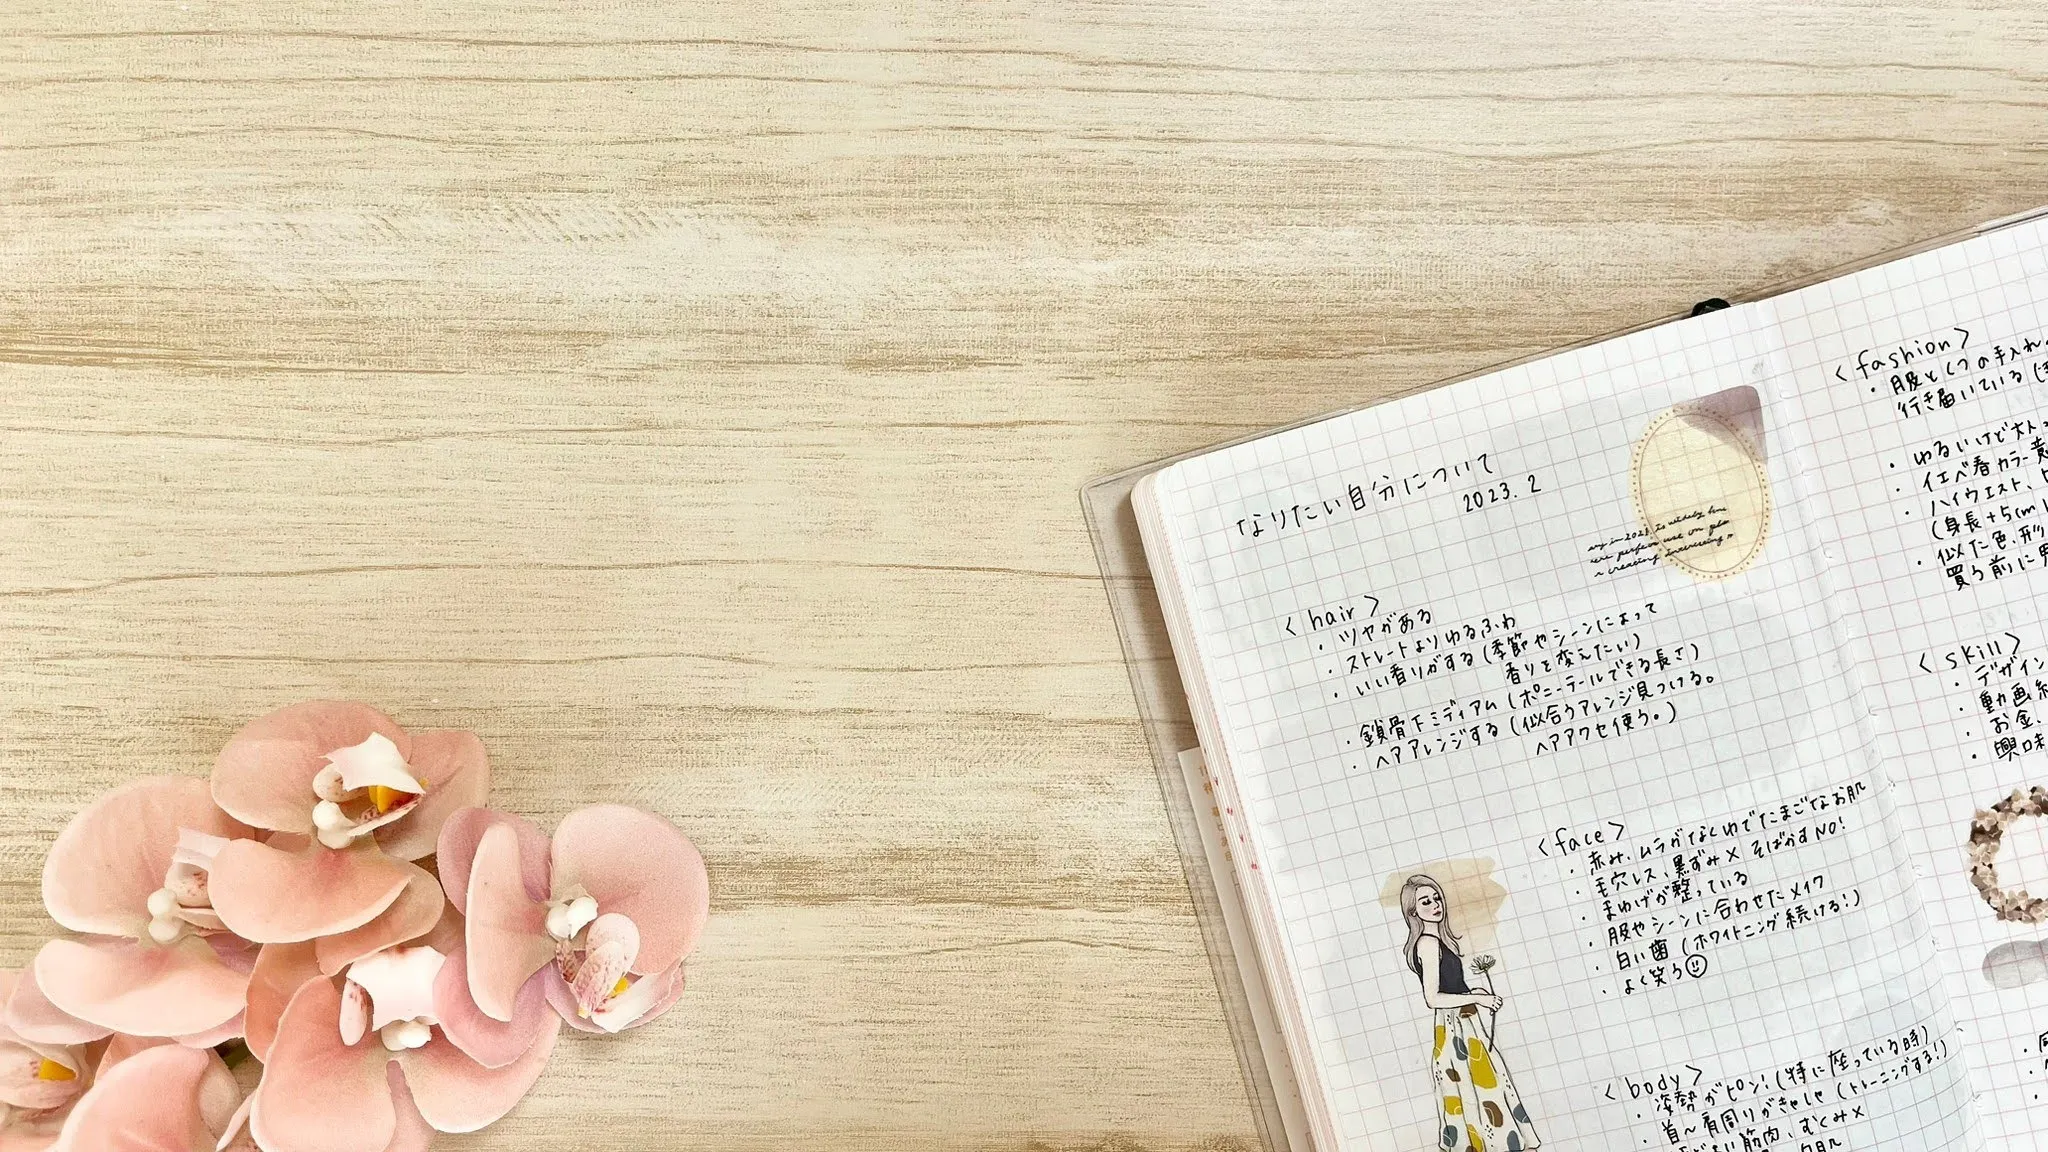 なりたい自分について
2023. 2
<hair>
・ツヤがある
・ストレートよりゆるふわ
・いい香りがする(季節やシーンによって
香りを変えたい)
・鎖骨下ミディアム(ポニーテールできる長さ)
・ヘアアレンジする(似合うアレンジ見つける。
ヘアアクセ使う。)
<face>
・赤み、ムラがなくゆでたまごなお肌
・毛穴レス、黒ずみ× そばかすNO!
・まゆげが整っている
・服やシーンに合わせたメイク
・白い歯(ホワイトニング続ける!)
・よく笑う☺
<body>
・姿勢がピン!(特に座っている時)
・首〜肩周りがきゃしゃ(トレーニングする!)
筋肉、むくみ×
<fashion>
・服とくつの手入れ
行き届いている
・ゆるいけど大人
・イエベ春カラー意
・ハイウエスト、
(身長+5cm
・似た色、形
買う前に
<skill>
・デザイン
・動画
・お金、
・興味